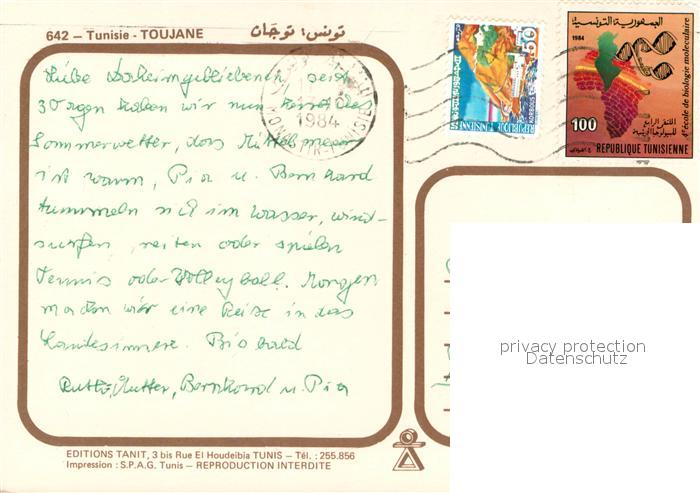 642 – Tunisie - TOUJANE تونس: توجان
Liebe Daheimgebliebenen, seit
3 Tagen haben wir nun
Sommerwetter, das Mittelmeer
ist warm, Pia u. Bernhard
tummeln sich im Wasser, wind-
surfen, reiten oder spielen
Tennis oder Volleyball. Morgen
machen wir eine Reise in das
Landesinnere. Bis bald
Mutter, Bernhard u. Pia
1984
MONASTIR TUNISIE
50
REPUBLIQUE TUNISIENNE
الجمهورية التونسية
1984
4e école de biologie moléculaire
100
REPUBLIQUE TUNISIENNE
privacy protection
Datenschutz
EDITIONS TANIT, 3 bis Rue El Houdeibia TUNIS – Tél. : 255.856
Impression : S.P.A.G. Tunis – REPRODUCTION INTERDITE